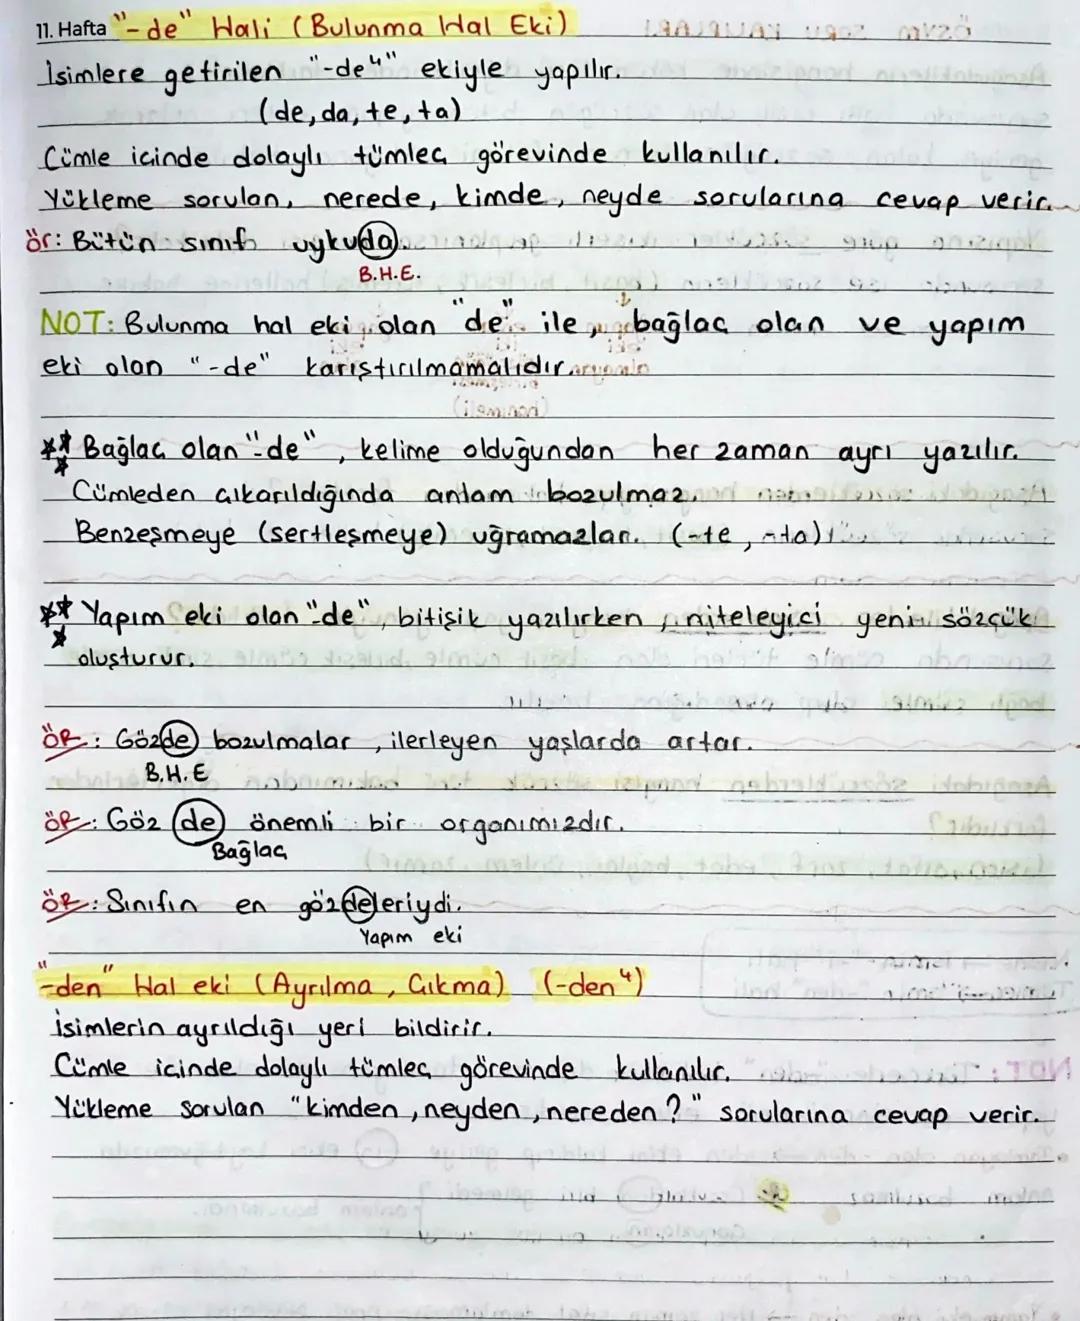 11. Hafta "-de" Hali (Bulunma Hal Eki)
İsimlere getirilen "-de⁴" ekiyle yapılır.
(de, da, te, ta)
Cümle içinde dolaylı tümleç görevinde kullanılır.
Yükleme sorulan, nerede, kimde, neyde sorularına cevap verir.
ör: Bütün sınıfı uykuda.
B.H.E.
NOT: Bulunma hal eki olan "de" ile, bağlaç olan ve yapım
eki olan "-de" karıştırılmamalıdır.
** Bağlaç olan "-de", kelime olduğundan her zaman ayrı yazılır.
*
Cümleden çıkarıldığında anlam bozulmaz.
Benzeşmeye (sertleşmeye) uğramazlar. (-te, -ta)
** Yapım eki olan "de", bitişik yazılırken, niteleyici yeni sözcük
*
oluşturur.
ÖR: Gözde bozulmalar, ilerleyen yaşlarda artar.
B.H.E
ÖR: Göz de önemli bir organımızdır.
Bağlaç
ÖR: Sınıfın en gözdeleriydi.
Yapım eki
"-den" Hal eki (Ayrılma, Çıkma) (-den⁴)
İsimlerin ayrıldığı yeri bildirir.
Cümle içinde dolaylı tümleç görevinde kullanılır.
Yükleme sorulan "kimden, neyden, nereden?" sorularına cevap verir.